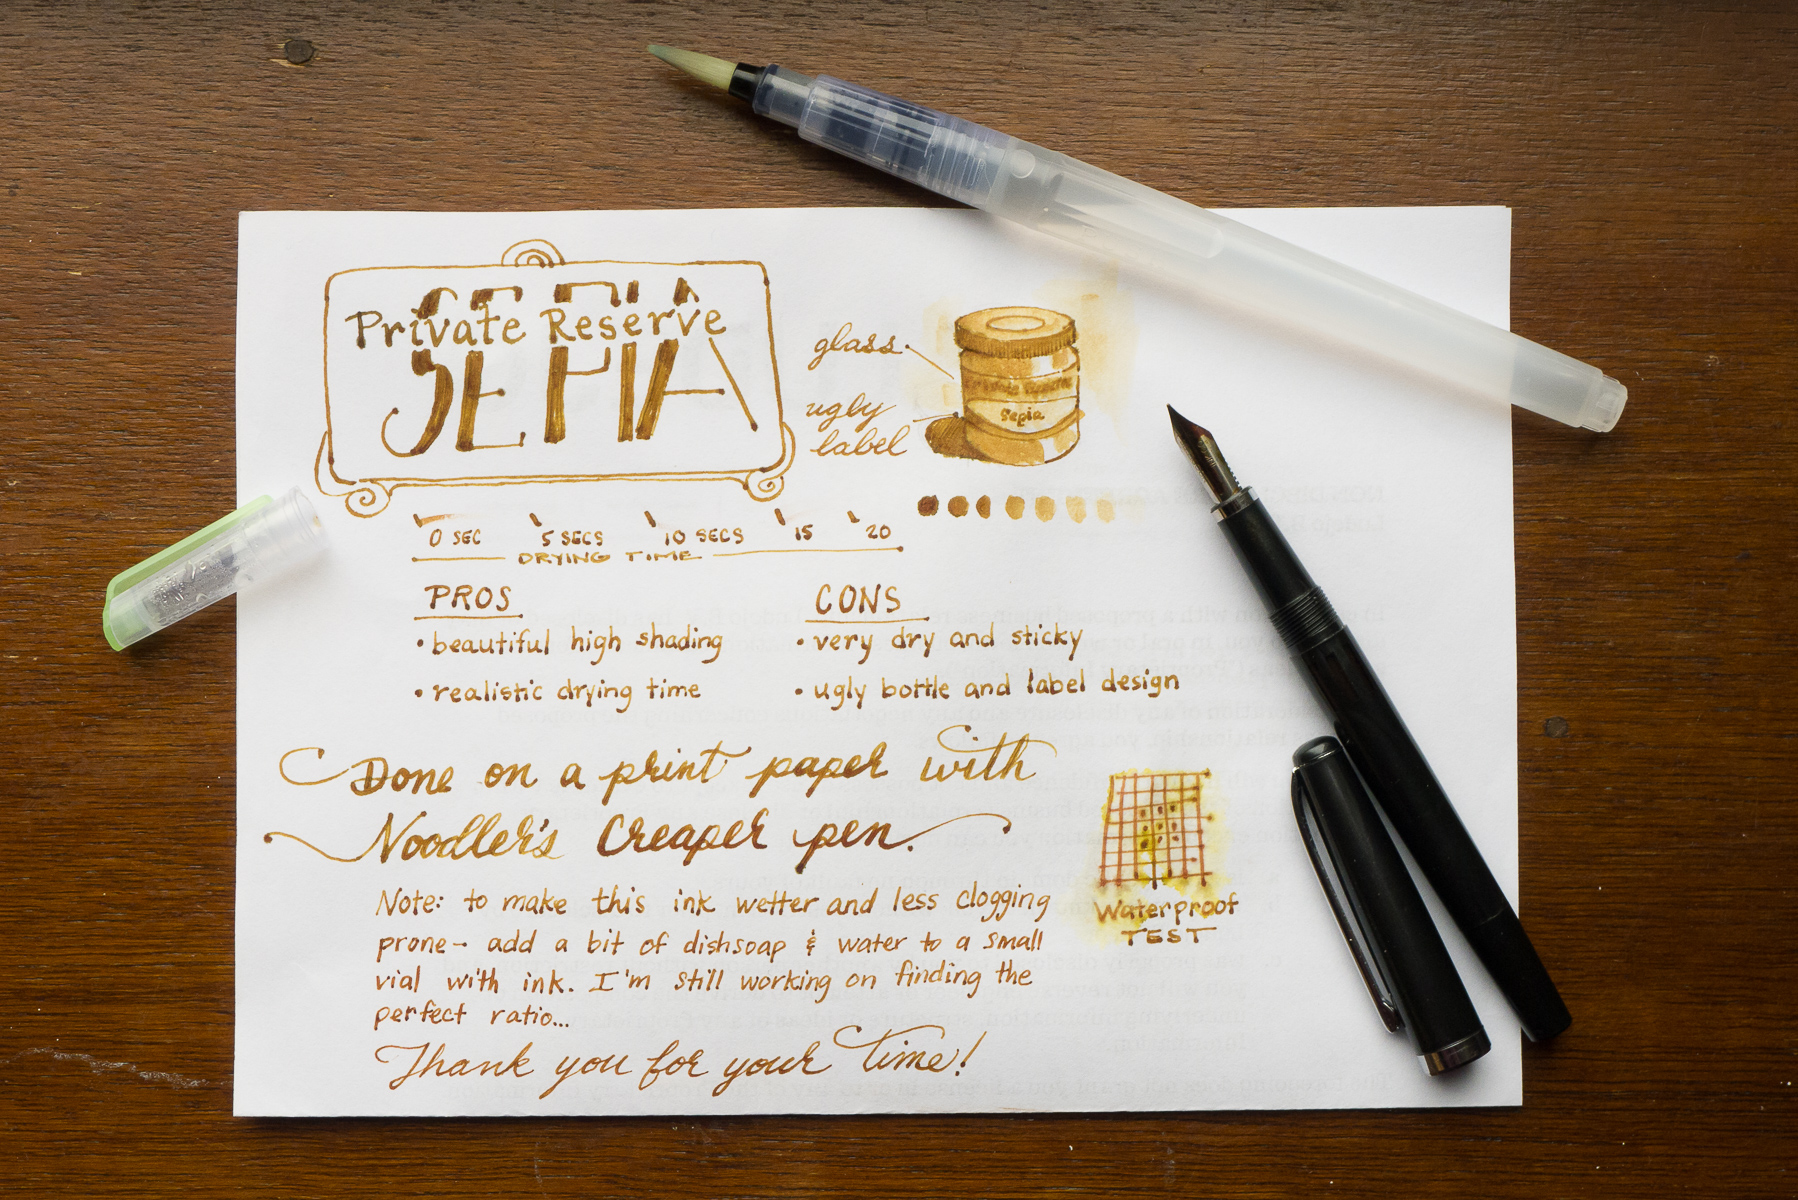 Private Reserve
SEPIA
glass
ugly
label
Sepia
0 SEC 5 SECS 10 SECS 15 20
DRYING TIME
PROS
• beautiful high shading
• realistic drying time
CONS
• very dry and sticky
• ugly bottle and label design
Done on a print paper with
Noodler's Creaper pen.
Note: to make this ink wetter and less clogging
prone - add a bit of dishsoap & water to a small
vial with ink. I'm still working on finding the
perfect ratio...
Thank you for your time!
Waterproof
TEST